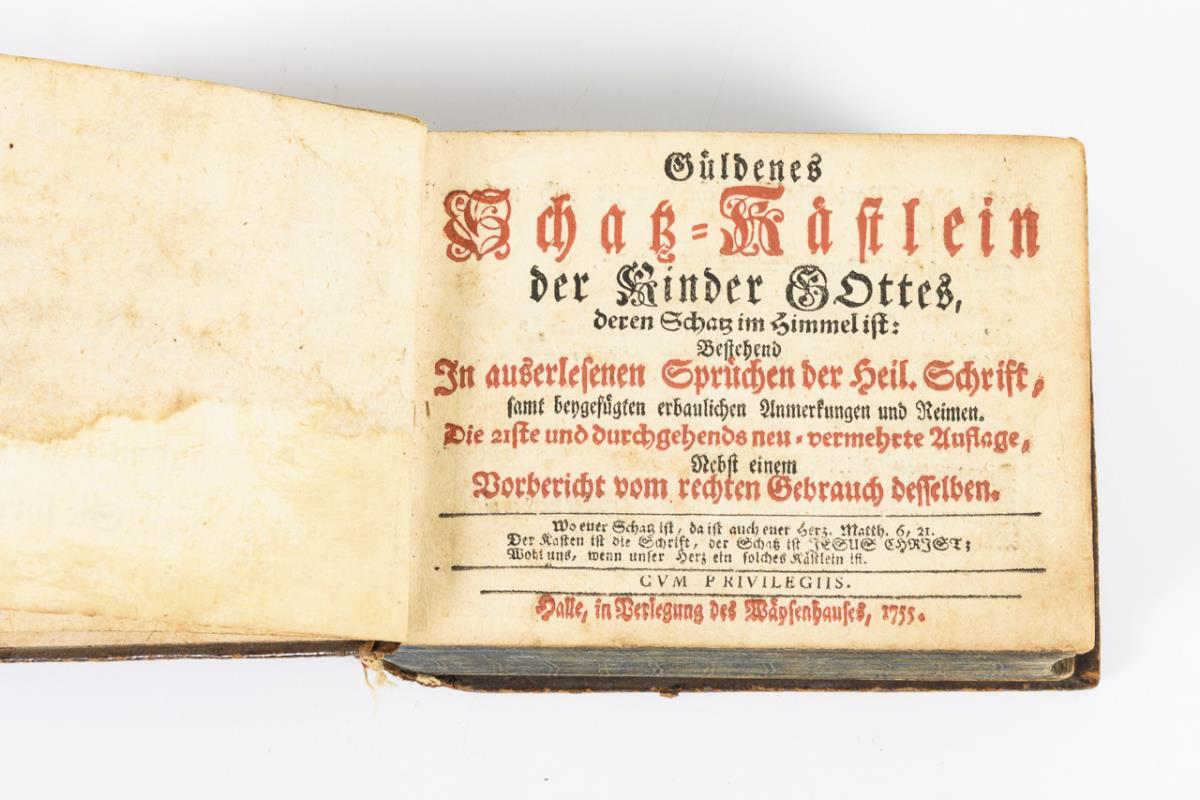 Güldenes
Schatz-Kästlein
der Kinder GOttes,
deren Schatz im Himmel ist:
Bestehend
In auserlesenen Sprüchen der Heil. Schrift,
samt beygefügten erbaulichen Anmerkungen und Reimen.
Die 21ste und durchgehends neu-vermehrte Auflage,
Nebst einem
Vorbericht vom rechten Gebrauch desselben.
Wo euer Schatz ist, da ist auch euer Herz. Matth. 6, 21.
Der Kasten ist die Schrift, der Schatz ist JESUS CHRIST;
Wohl uns, wenn unser Herz ein solches Kästlein ist.
CVM PRIVILEGIIS.
Halle, in Verlegung des Wäysenhauses, 1755.